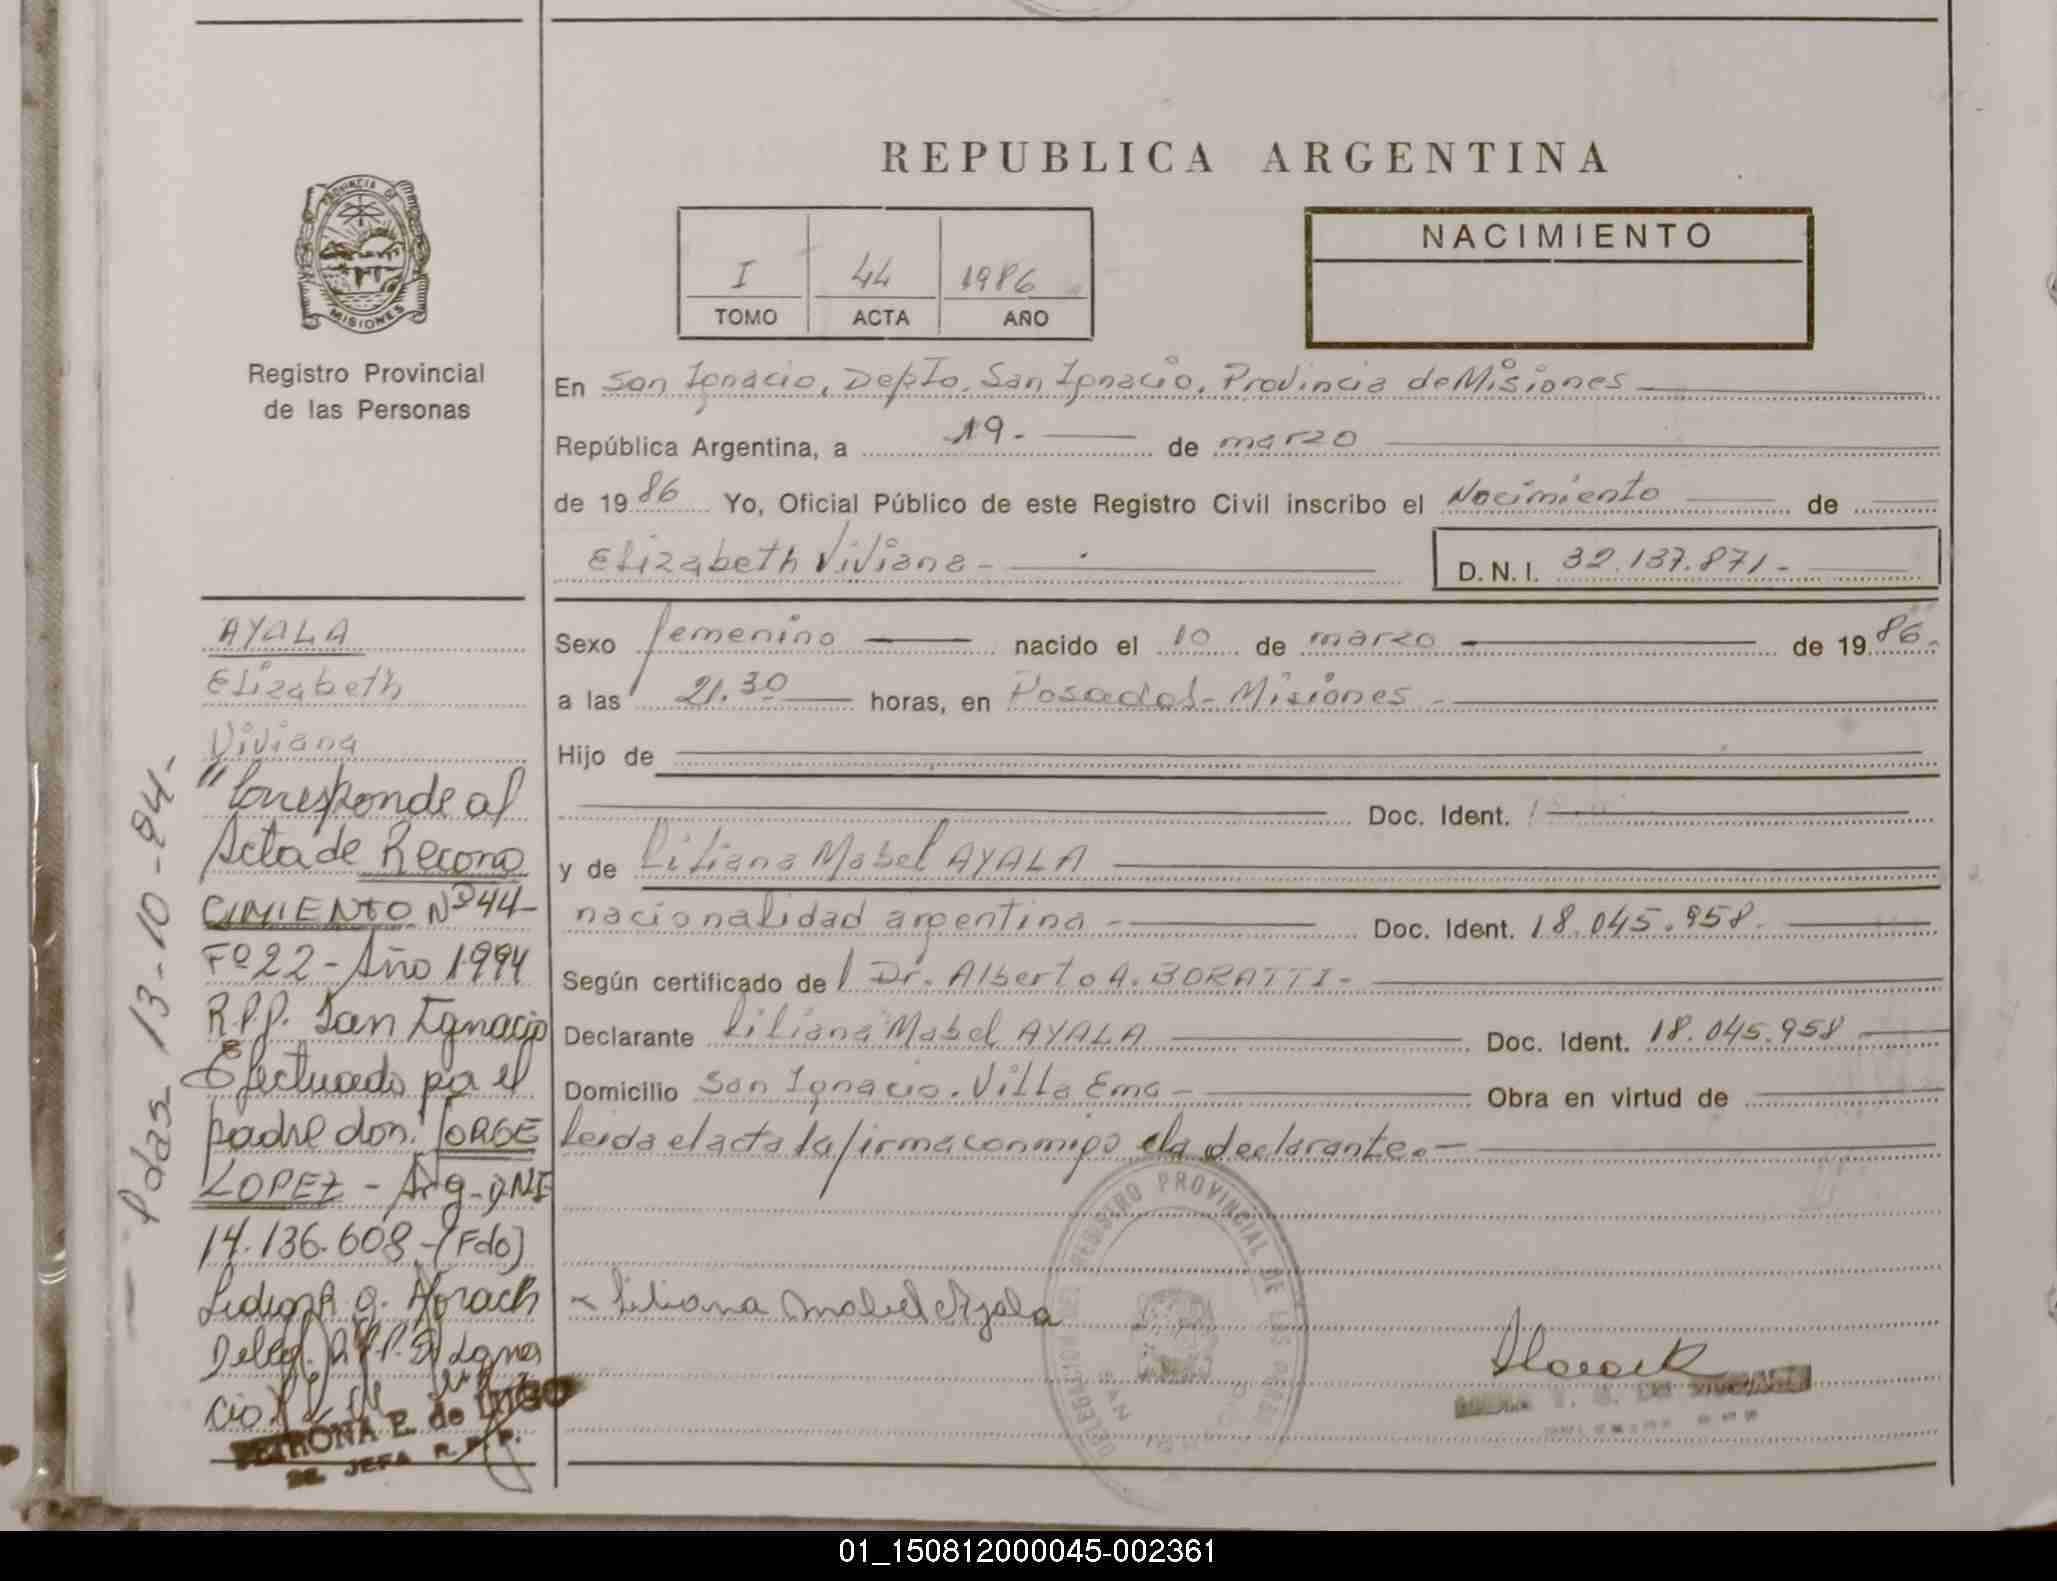 REPUBLICA ARGENTINA
PROVINCIA DE
MISIONES
Registro Provincial
de las Personas
I 44 1986
TOMO ACTA AÑO
NACIMIENTO
En San Ignacio, Depto. San Ignacio, Provincia de Misiones
República Argentina, a 19.- de marzo
de 1986 Yo, Oficial Público de este Registro Civil inscribo el Nacimiento de
Elizabeth Viviana - D.N.I. 32.137.871-
Sexo femenino nacido el 10 de marzo de 1986.
a las 21.30 horas, en Posadas - Misiones -
Hijo de
Doc. Ident.
y de Liliana Mabel AYALA
nacionalidad argentina - Doc. Ident. 18.045.958.
Según certificado de Dr. Alberto A. BORATTI-
Declarante Liliana Mabel AYALA Doc. Ident. 18.045.958
Domicilio San Ignacio. Villa Ema - Obra en virtud de
leida el acta la firma conmigo la declarante.-
Liliana Mabel Ayala
REGISTRO PROVINCIAL DE LAS
SAN
AYALA
Elizabeth
Viviana
"Corresponde al
Acta de Recono
CIMIENTO Nº 44-
Fº 22 - Año 1994
R.P.P. San Ignacio
Efectuado por el
padre don: JORGE
LOPEZ - Arg - DNI
14.136.608 - (Fdo)
Deleg. R.P.P. S. Igna
cio
PETRONA E. de LUGO
JEFA R.P.P.
- Pdas 13-10-94-
01_150812000045-002361